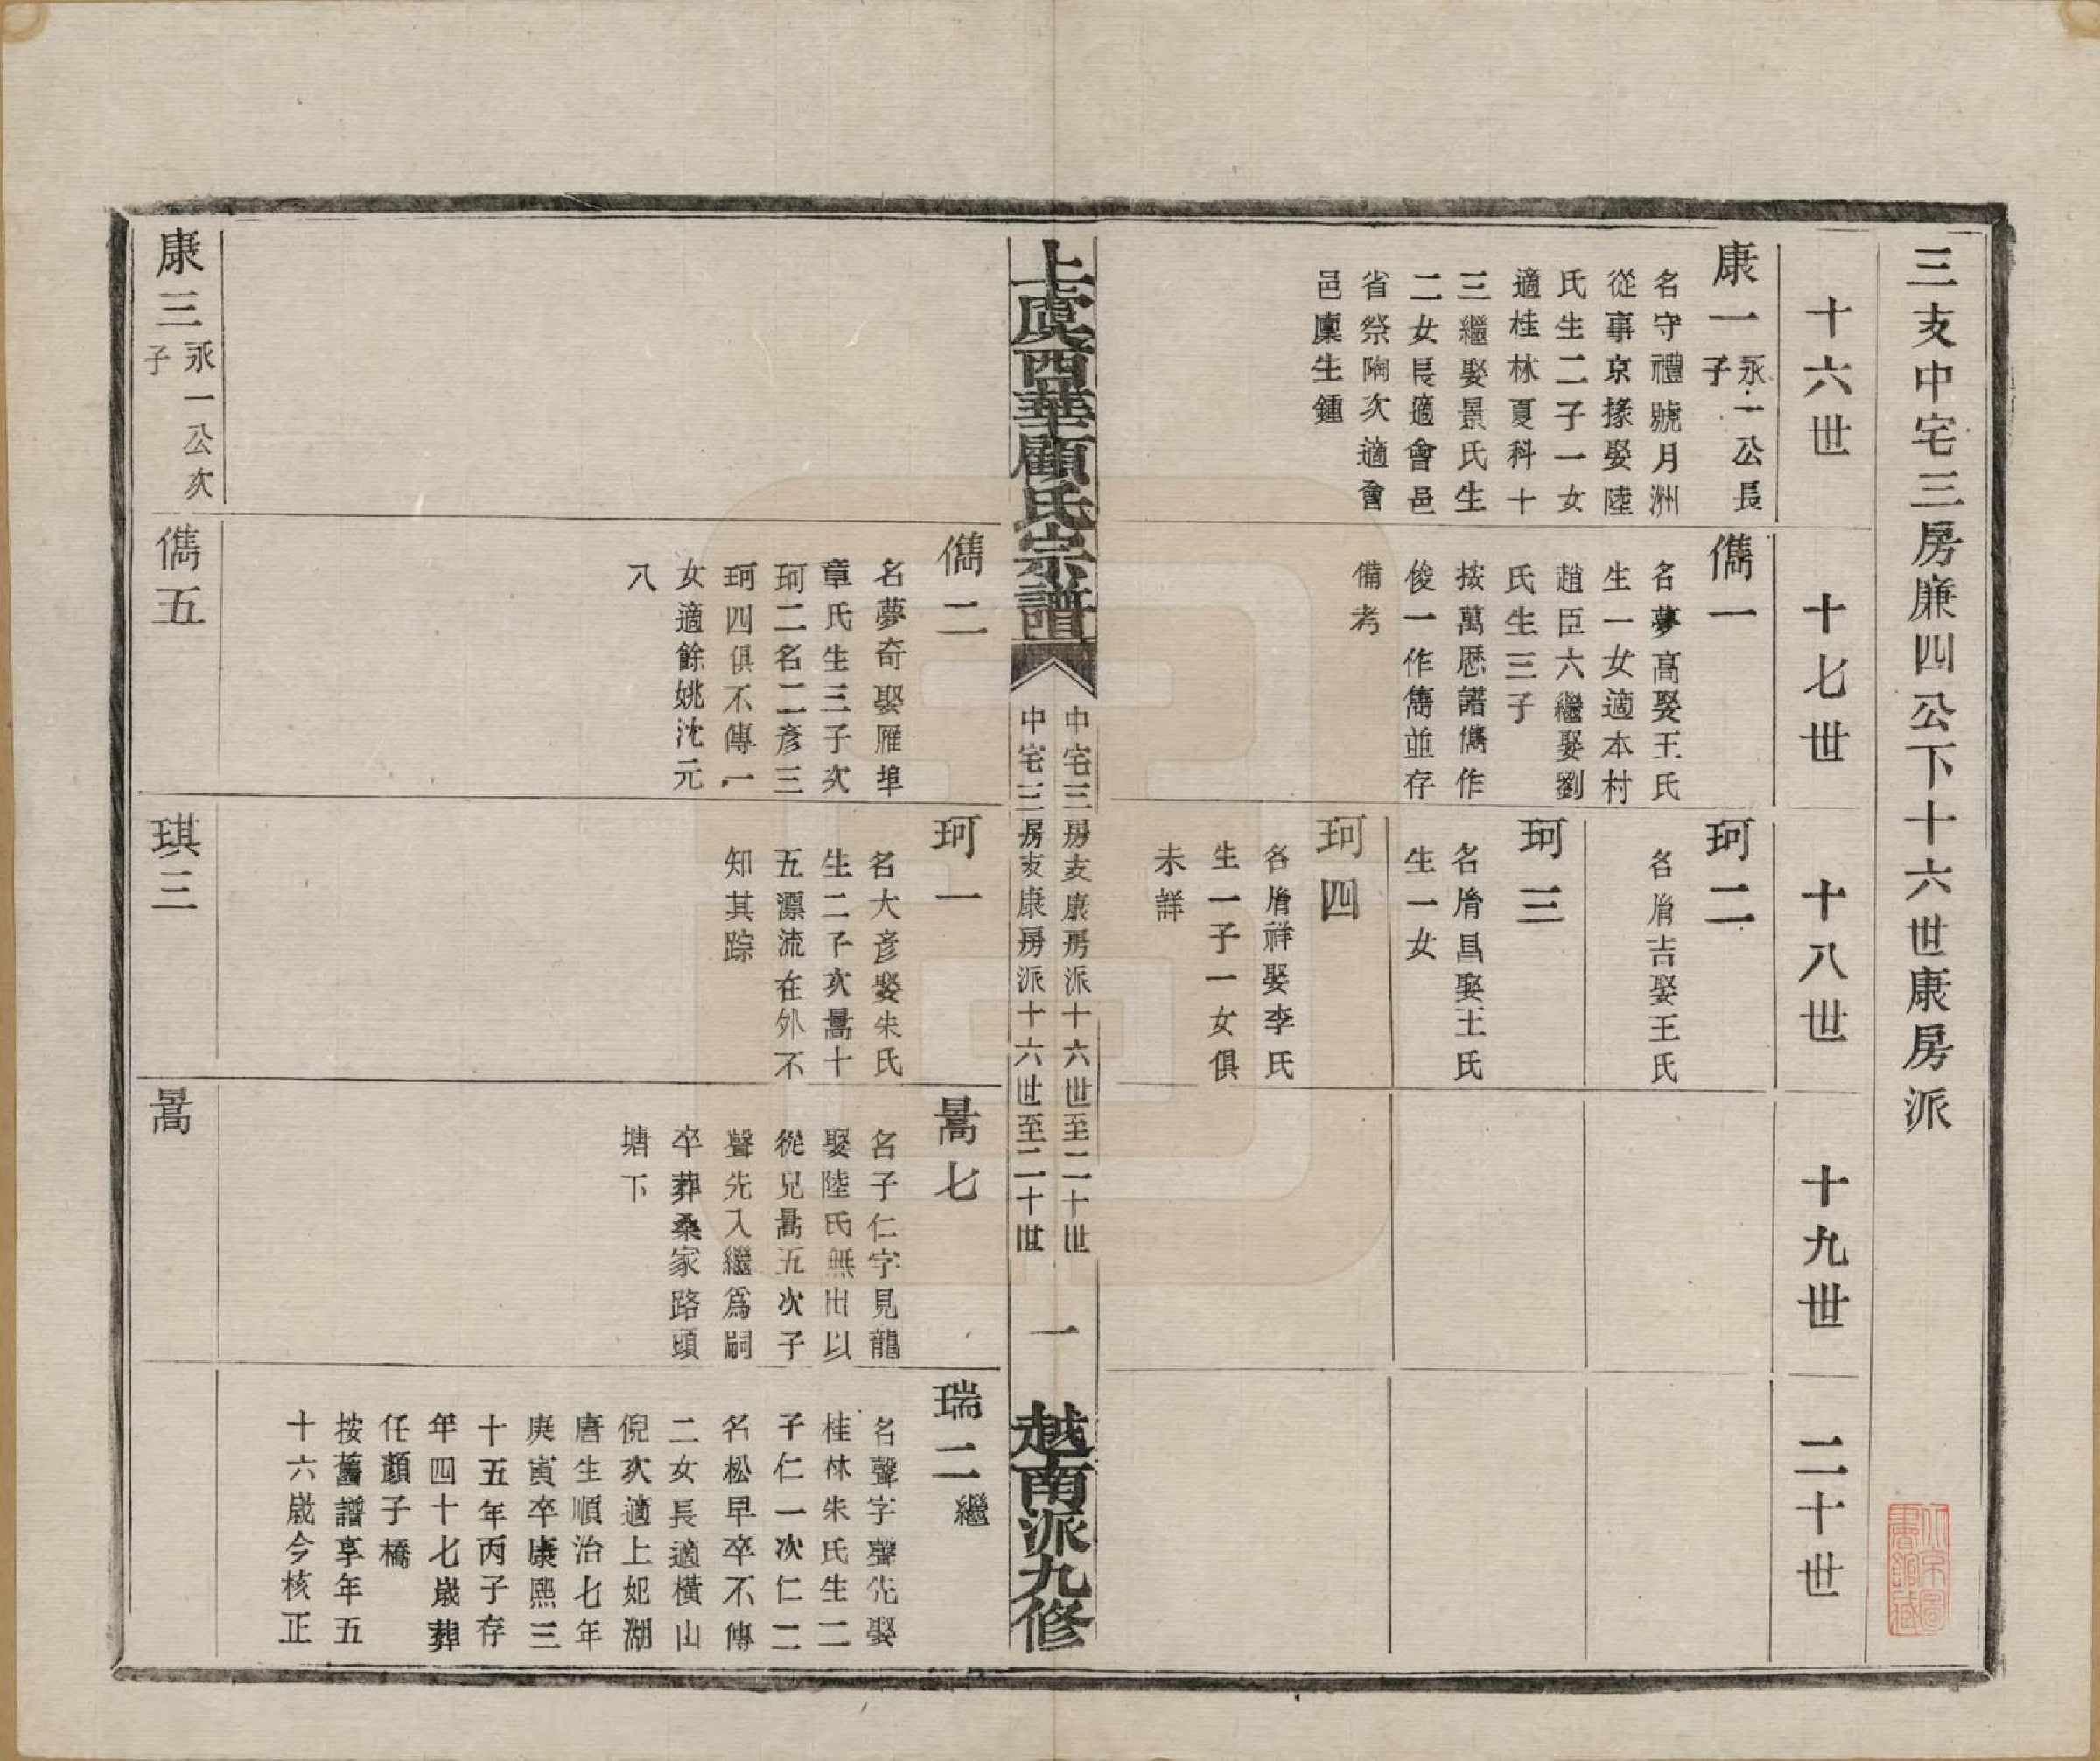 三支中宅三房廉四公下十六世康房派
十六世
十七世
十八世
十九世
二十世
康一
永一公長
子
名守禮號月洲
從事京掾娶陸
氏生二子一女
適桂林夏科十
三繼娶景氏生
二女長適會邑
省祭陶次適會
邑廩生鍾
儁一
名夢高娶王氏
生一女適本村
趙臣六繼娶劉
氏生三子
按萬曆譜儁作
俊一作雋並存
備考
珂二
名胤吉娶王氏
珂三
名胤昌娶王氏
生一女
珂四
名胤祥娶李氏
生一子一女俱
未詳
上虞西華顧氏宗譜
中宅三房支康房派十六世至二十世
中宅三房支康房派十六世至二十世
一
越南派九修
儁二
名夢奇娶雁埠
章氏生三子次
珂二名二彥三
珂四俱不傳一
女適餘姚沈元
八
珂一
名大彥娶朱氏
生二子次暠十
五漂流在外不
知其踪
暠七
名子仁字見龍
娶陸氏無出以
從兄暠五次子
聲先入繼爲嗣
卒葬桑家路頭
塘下
瑞二
繼
名聲字聲先娶
桂林朱氏生二
子仁一次仁二
名松早卒不傳
二女長適橫山
倪次適上妃湖
唐生順治七年
庚寅卒康熙三
十五年丙子存
年四十七歲葬
任顏子橋
按舊譜享年五
十六歲今核正
康三
永一公次
子
儁五
琪三
暠